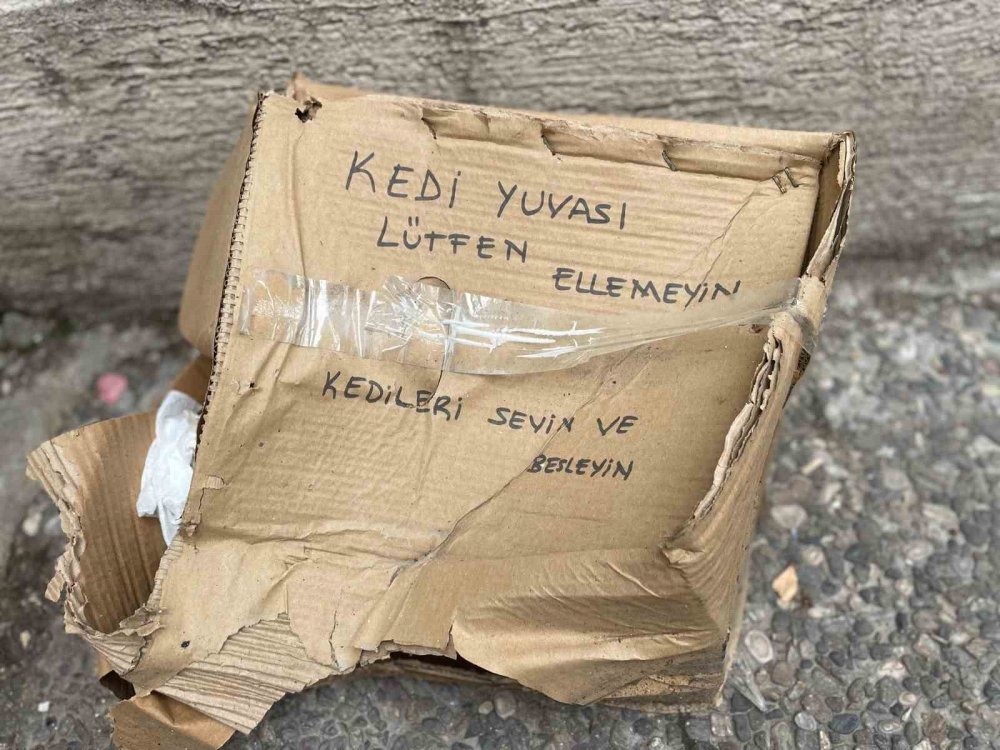 KEDİ YUVASI
LÜTFEN
ELLEMEYİN
KEDİLERİ SEVİN VE
BESLEYİN